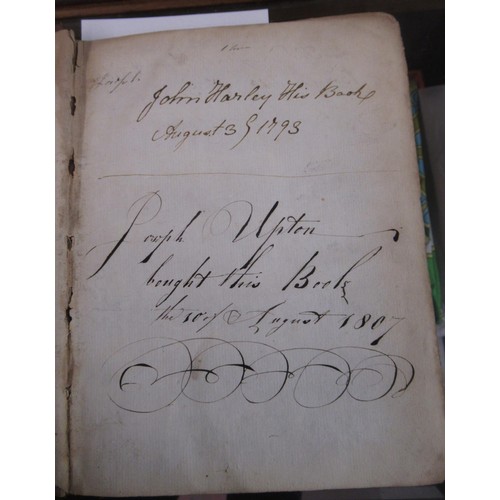 John Harley His Book
August 3 1793
Joseph Upton
bought this Book
the 10 of August 1807